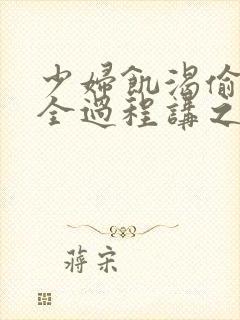 少婦飢渴偷
全過程講之
蔣宋